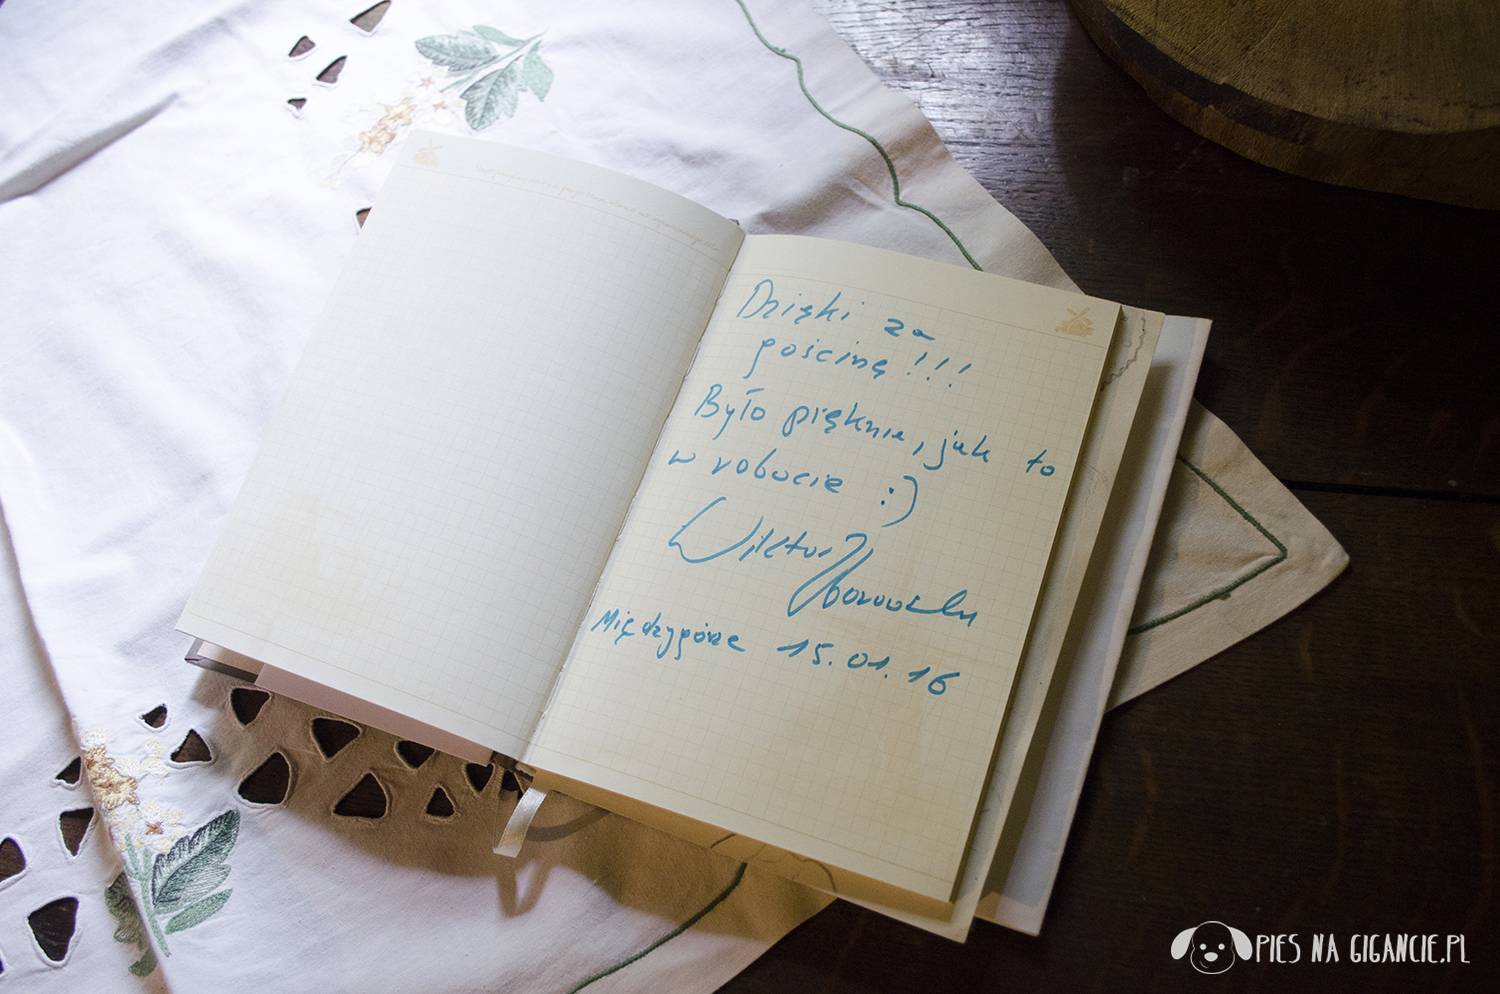 Dzięki za
gościnę!!!
Było pięknie, jak to
w robocie :)
Wiktor Zborowski
Międzygórze 15.01.16
PIES NA GIGANCIE.PL